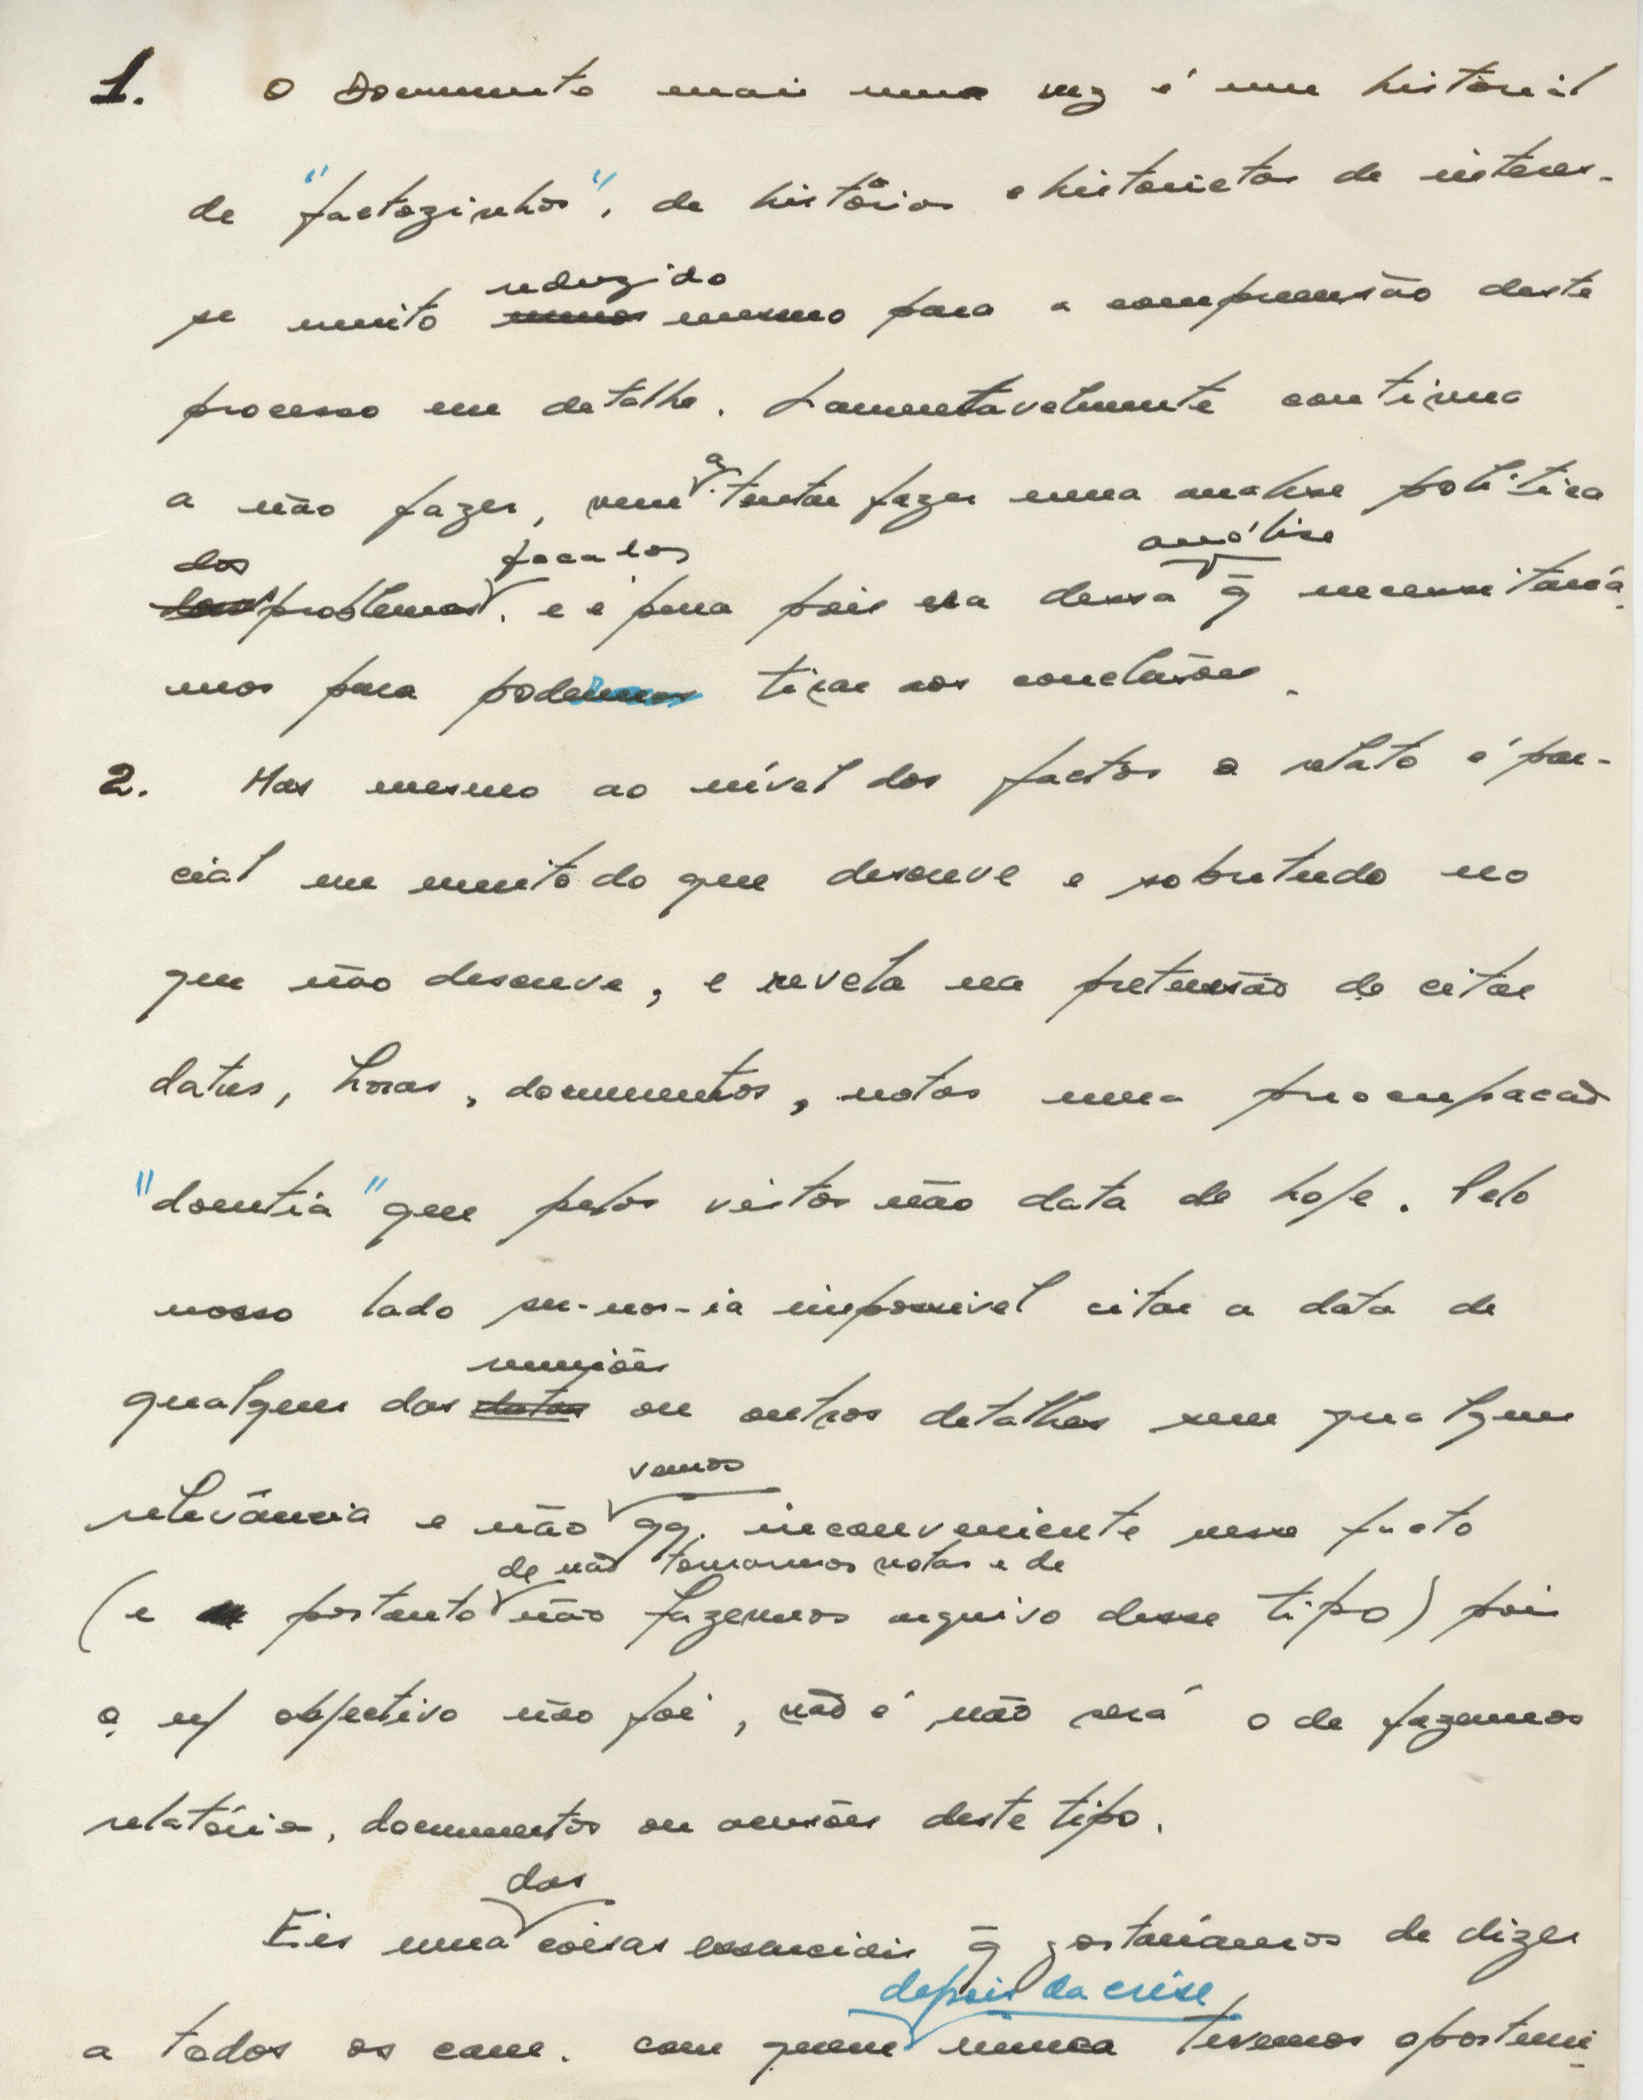 1. O Documento mais uma vez é um historial
de "factozinhos", de histórias e historietas de interes-
se muito reduzido mesmo para a compreensão deste
processo em detalhe. Lamentavelmente continua
a não fazer, nem a tentar fazer uma analise politica
dos problemas focados, e é pena pois era dessa análise q̃ necessitaría-
mos para podermos tirar as conclusões.
2. Mas mesmo ao nível dos factos o relato é par-
cial em muito do que descreve e sobretudo no
que não descreve, e revela na pretensão de citar
datas, horas, documentos, notas uma preocupação
"doentia" que pelos vistos não data de hoje. Pelo
nosso lado ser-nos-ia impossivel citar a data de
qualquer das reuniões ou outros detalhes sem qualquer
relevância e não vemos qq. inconveniente nesse facto
(e portanto de não tomarmos notas e de não fazermos arquivo desse tipo) pois
o n/ objectivo não foi, não é não será o de fazermos
relatórios, documentos ou acusões deste tipo.
Eis uma das coisas essenciais q̃ gostaríamos de dizer
a todos os cam. com quem depois da crise nunca tivemos oportuni-